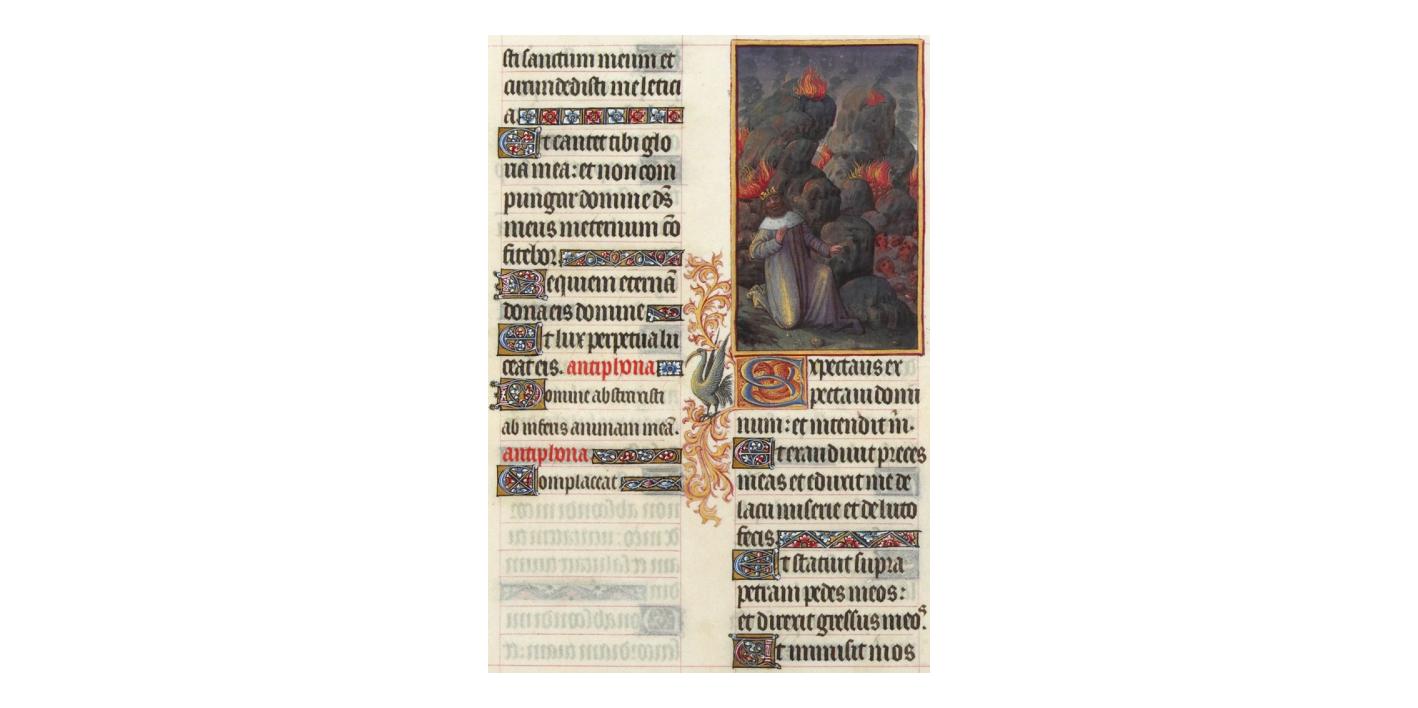 sti sanctum meum et
circumdedisti me letici
a.
Et cantet tibi glo
ria mea: et non com
pungar domine ds̄
meus ineternum cō
fitebor.
Requiem eternā
dona eis domine
Et lux perpetua lu
ceat eis. antiphona
Domine abstraxisti
ab inferis animam meā.
antiphona
Complaceat
Expectans ex
pectaui domi
num: et intendit m̄.
Et exaudiuit preces
meas et eduxit me de
lacu miserie et de luto
fecis.
Et statuit supra
petram pedes meos:
et direxit gressus meos.
Et immisit in os